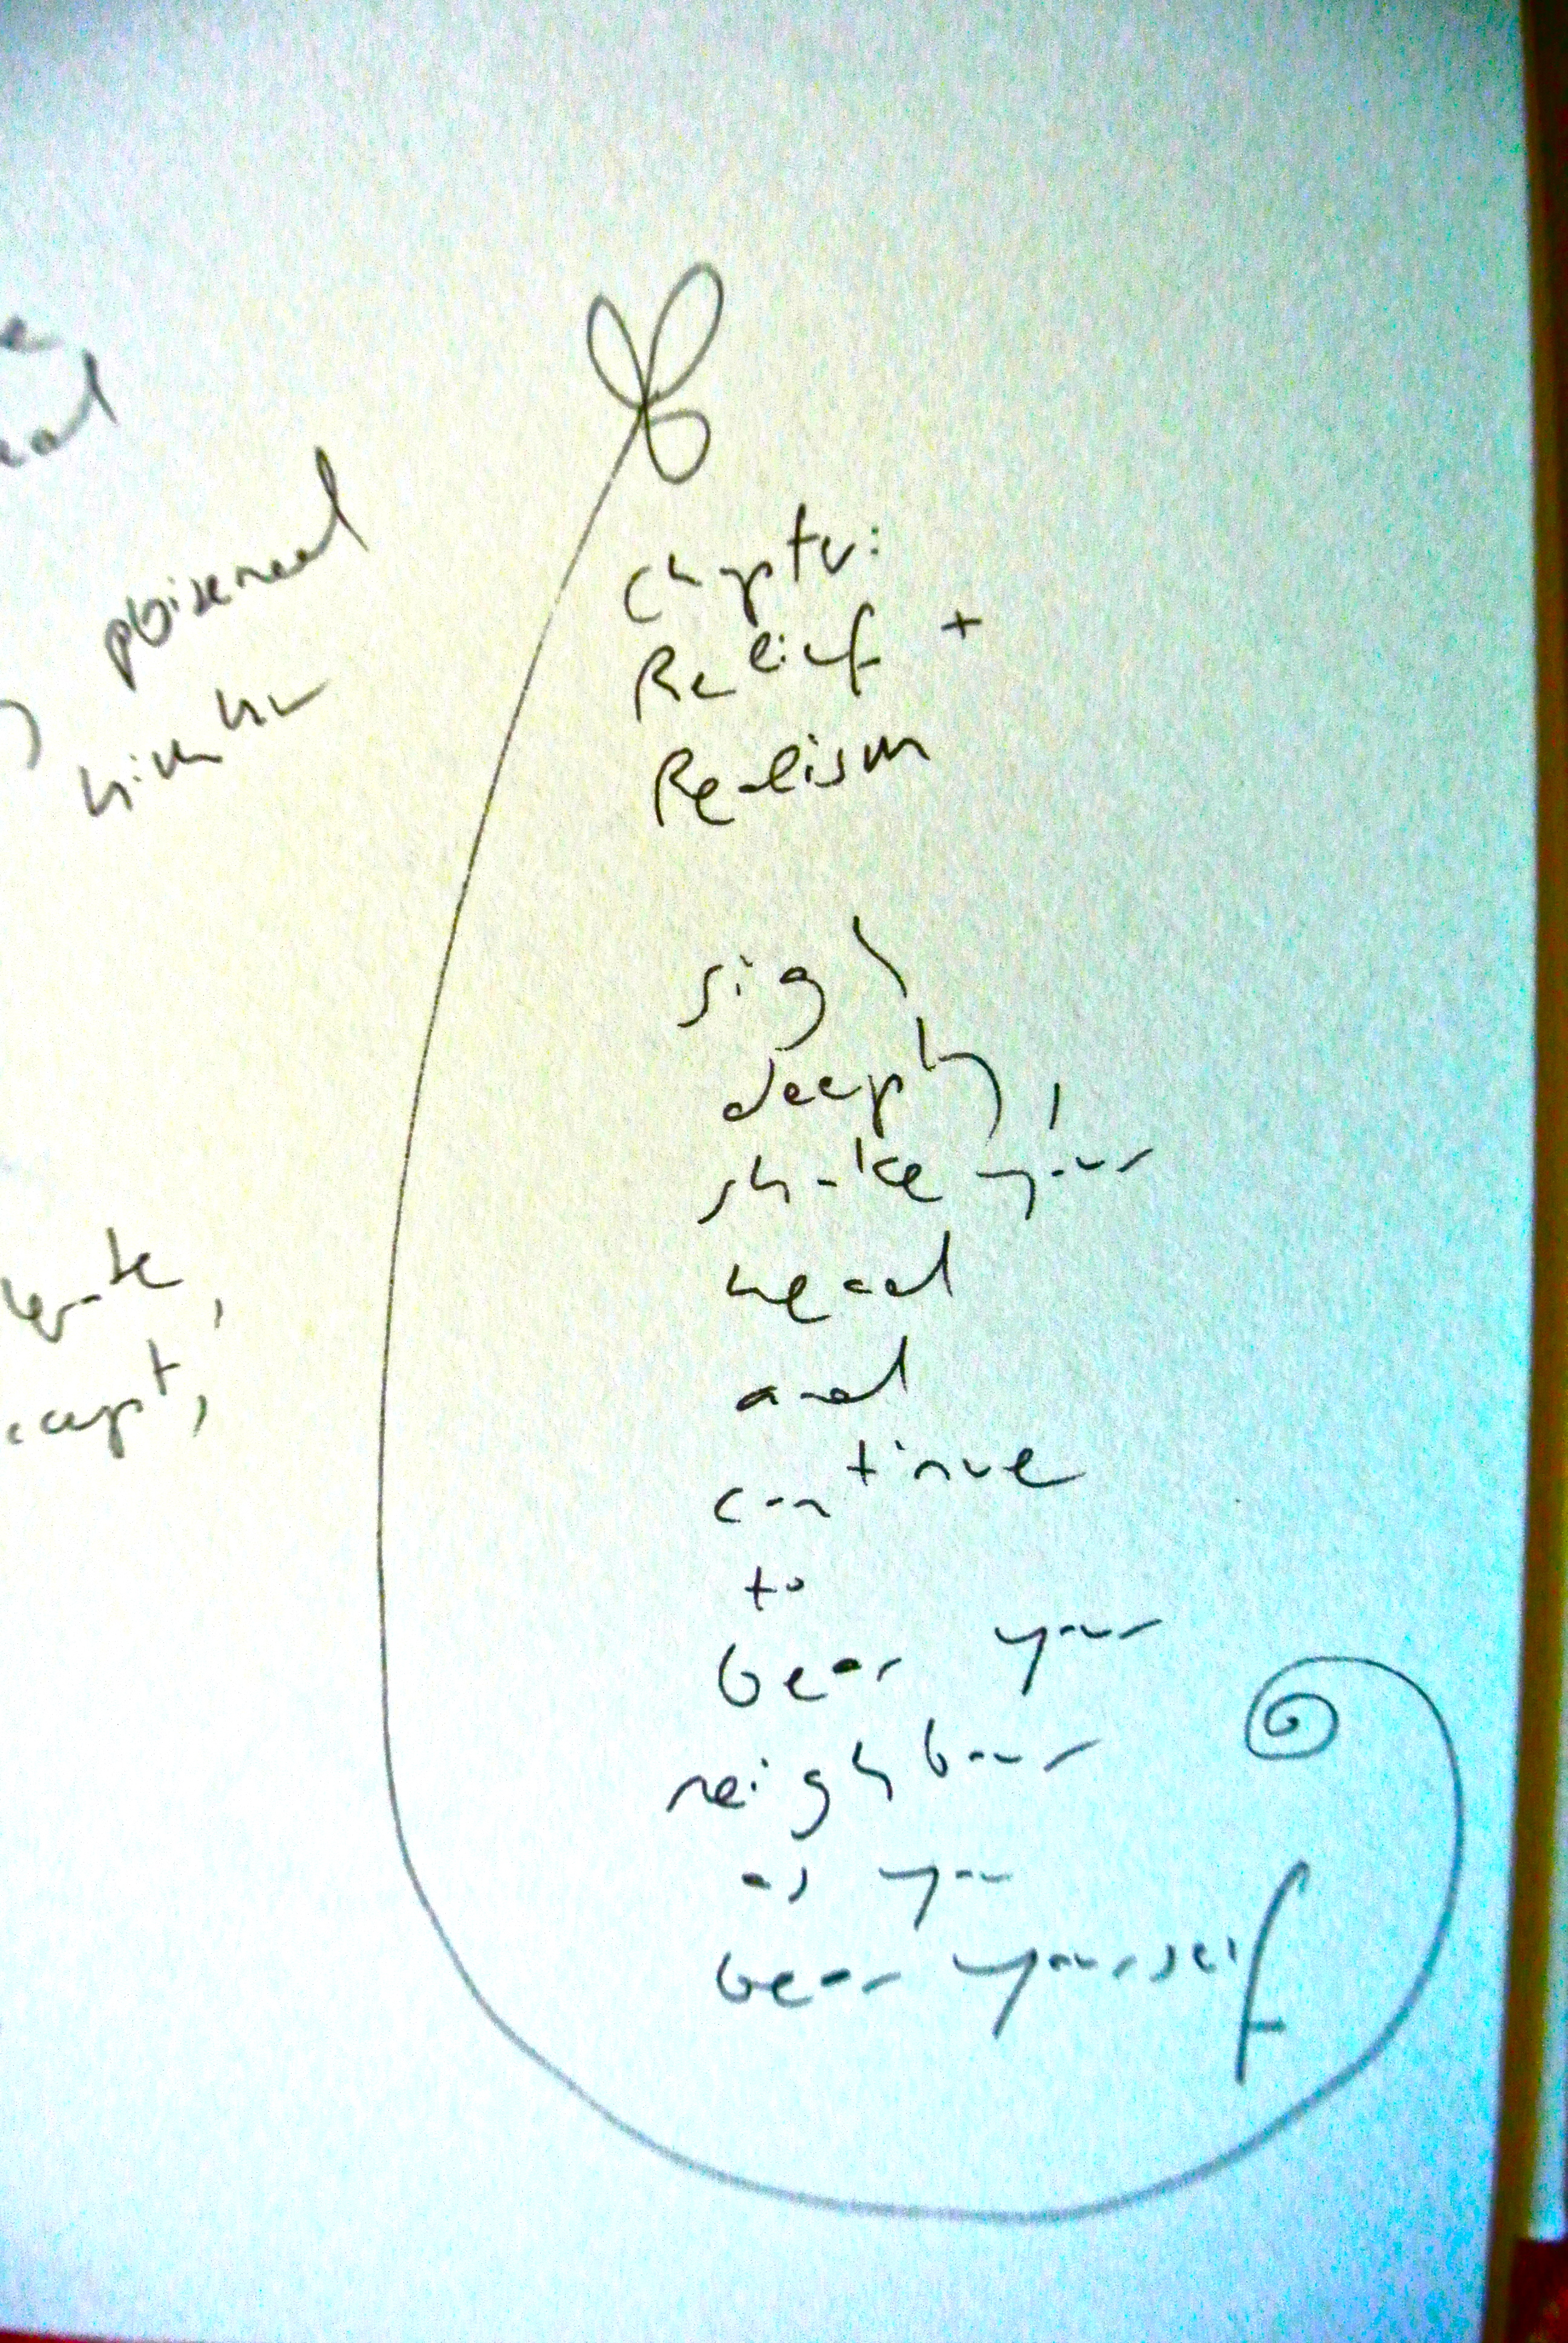 poisened
Chapter:
Relief +
Realism
sigh
deeply,
shake your
head
and
continue
to
bear your
neighbour
as you
bear yourself